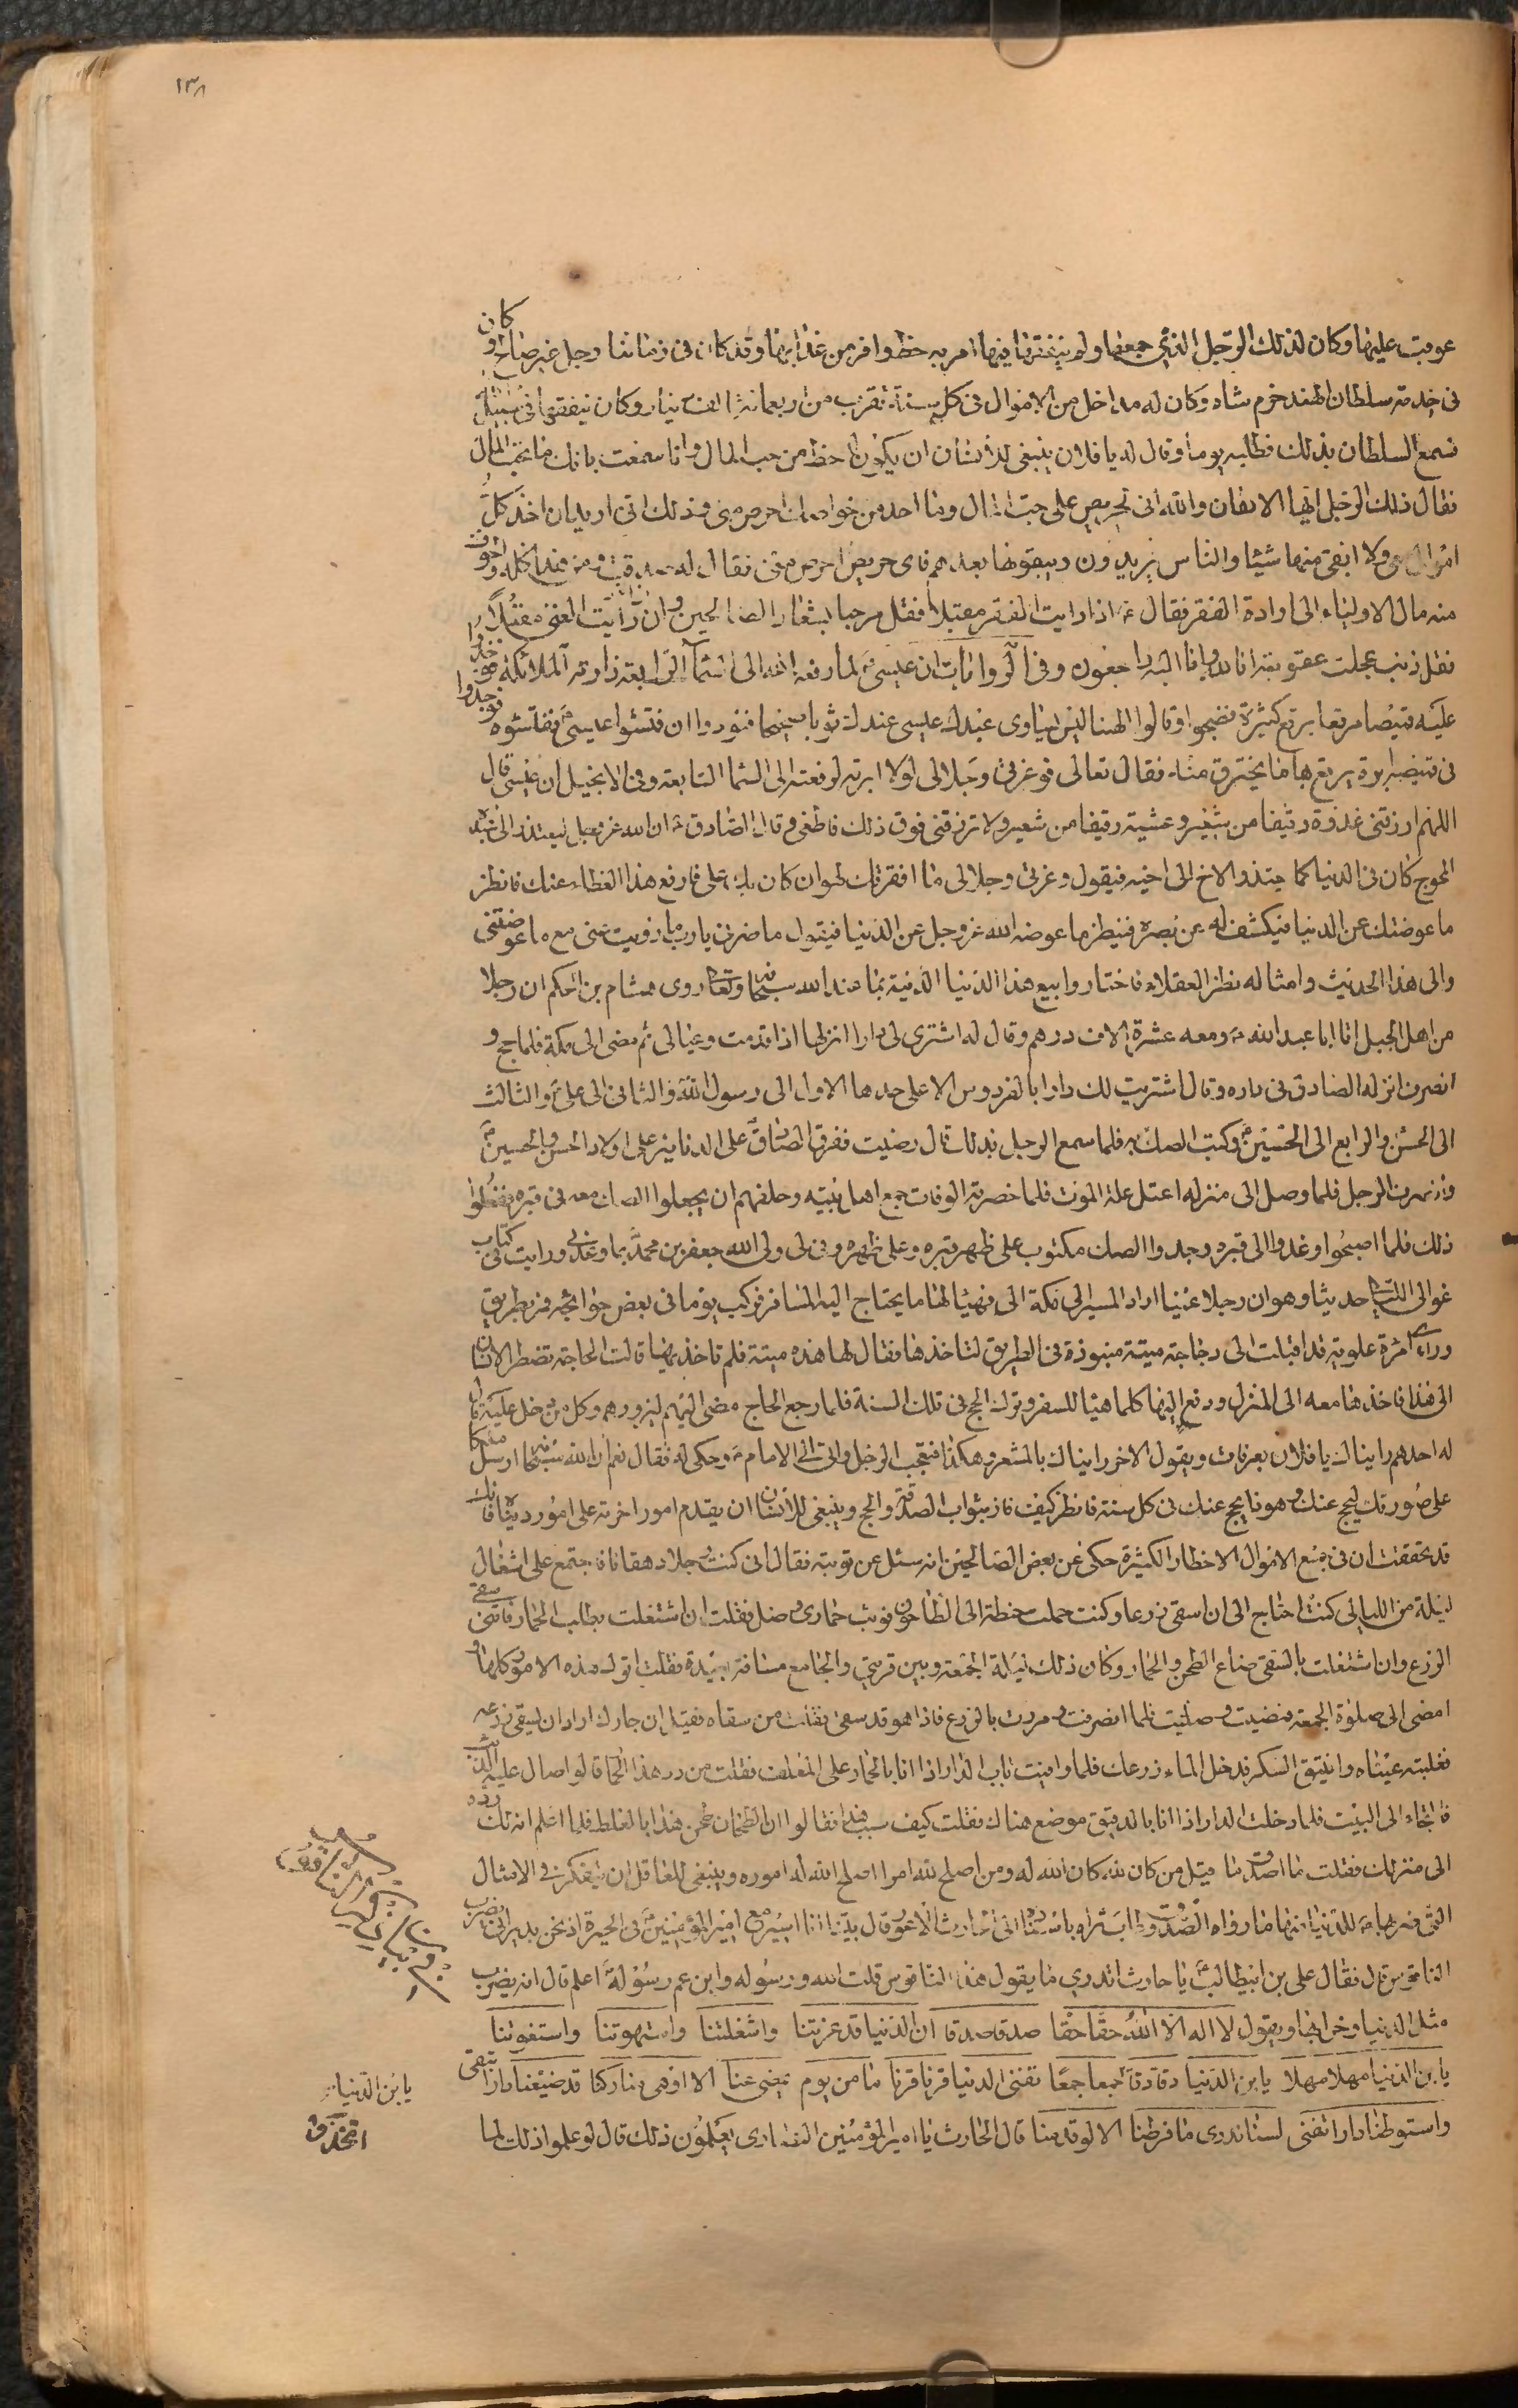 ١٣٨
عوتب عليها وكان لذلك الرجل الذي جمعها ولم ينفق منها امر به حظ وافر من عذابها وقد كان في زماننا رجل غير صالح وكان
في خدمة سلطان الهند خرم شاه وكان له مداخل من الاموال في كل سنة تقرب من اربعمائة الف دينار وكان ينفقها في سبيل
فسمع السلطان بذلك فطلبه يوما وقال له يا فلان ينبغي للانسان ان يكون له حظ من حب المال وانا سمعت بانك ما تحب المال
فقال ذلك الرجل ايها السلطان والله اني لحريص على حب المال وما احد من خواصك احرص مني وذلك اني اريد ان اخذ كل
اموالي معي ولا ابقي منها شيئا والناس يريدون ويبقونها بعدهم فاي حريص احرص مني فقال له صدقت ومن هذا كله واخوف
منه مال الاولياء الى ارادة الفقر فقال ع اذا رايت الفقر مقبلا فقل مرحبا بشعار الصالحين وان رايت الغنى مقبلا
فقل ذنب عجلت عقوبته انا لله وانا اليه راجعون وفي الروايات ان عيسى ع لما رفعه الله الى السماء الرابعة زارته الملائكة فوجدوا
عليه قميصا مرقعا برقع كثيرة فضجوا وقالوا الهنا اليس يساوي عبدك عيسى عندك ثوبا صحيحا فنودوا ان فتشوا عيسى ع ففتشوه فوجدوا
في قميصه ابرة يرقع بها ما يخترق منه فقال تعالى فوعزتي وجلالي لولا ابرته لرفعته الى السماء السابعة وفي الانجيل ان عيسى قال
اللهم ارزقني غدوة رغيفا من شعير وعشية رغيفا من شعير ولا ترزقني فوق ذلك فاطغى وقال الصادق ع ان الله عز وجل ليعتذر الى عبده
المحوج كان في الدنيا كما يعتذر الاخ الى اخيه فيقول وعزتي وجلالي ما افقرتك لهوان كان بك علي فارفع هذا الغطاء عنك فانظر
ما عوضتك عن الدنيا فيكشف له عن بصره فينظر ما عوضه الله عز وجل عن الدنيا فيقول ما ضرني يارب ما زويت عني مع ما عوضتني
والى هذا الحديث وامثاله نظر العقلاء فاختاروا بيع هذا الدنيا الدنية بما عند الله سبحانه وتعالى روى هشام بن الحكم ان رجلا
من اهل الجبل اتا ابا عبد الله ع ومعه عشرة الاف درهم وقال له اشتري لي دارا انزلها اذا قدمت وعيالي ثم مضى الى مكة فلما حج و
انصرف انزله الصادق في داره وقال اشتريت لك دارا بالفردوس الاعلى حدها الاول الى رسول الله والثاني الى علي والثالث
الى الحسن والرابع الى الحسين ع وكتبت الصك به فلما سمع الرجل بذلك قال رضيت ففرق الصادق على الدنانير على اولاد الحسن والحسين
وانصرف الرجل فلما وصل الى منزله اعتل علة الموت فلما حضرته الوفات جمع اهل بيته وحلفهم ان يجعلوا الصك معه في قبره ففعلوا
ذلك فلما اصبحوا وغدوا الى قبره وجدوا الصك مكتوب على ظهر قبره وعلى ظهره وفى لي ولي الله جعفر بن محمد بما وعدني ورايت في كتاب
غوالي اللئالي حديثا وهو ان رجلا غنيا اراد المسير الى مكة الى فهيئا لها ما يحتاج اليه المسافر فركب يوما في بعض حوائجه فمر بطريق
وراى امرأة علوية قد اقبلت الى دجاجة ميتة منبوذة في الطريق لتاخذها فقال لها هذه ميتة فلم تاخذيها قالت الحاجة تضطر الانسان
الى هذا فاخذها معه الى المنزل ودفع اليها كلما هيئا للسفر وترك الحج في تلك السنة فلما رجع الحاج مضى اليهم ليزورهم وكل من دخل عليه قال
له احدهم رايناك يا فلان بعرفات ويقول الاخر رايناك بالمشعر وهكذا فتعجب الرجل واتى الى الامام ع وحكى له فقال نعم ان الله سبحانه ارسل ملكا
على صورتك ليحج عنك وهو ذا يحج عنك في كل سنة فانظر كيف فاز بثواب الصدقة والحج وينبغي للانسان ان يقدم امور اخرته على امور دنياه فانك
قد تحققت ان في جمع الاموال الاخطار الكثيرة حكى عن بعض الصالحين انه سئل عن توبته فقال اني كنت رجلا دهقانا فاجتمع على اشغال
ليلة من الليالي كنت احتاج الى ان اسقي زرعا وكنت حملت حنطة الى الطاحون فوثب حماري وضل فقلت ان اشتغلت بطلب الحمار فاتني سقي
الزرع وان اشتغلت بالسقي ضاع الطحن والحمار وكان ذلك ليلة الجمعة وبين قريتي والجامع مسافة بعيدة فقلت اترك هذه الامور كلها و
امضي الى صلوة الجمعة فمضيت وصليت فلما انصرفت ومررت بالزرع فاذا هو قد سقي فقلت من سقاه فقيل ان جارك اراد ان يسقي زرعه
فغلبته عيناه وانبثق السكر فدخل الماء زرعك فلما وافيت باب الدار اذا انا بالحمار على المعلف فقلت من رد هذا الحمار قالوا صال عليه الذئب
فالتجاء الى البيت فلما دخلت الدار اذا انا بالدقيق موضع هناك فقلت كيف سبب هذا فقالوا ان الطحان طحن هذا بالغلط فلما اعلم انه لك رده
الى منزلك فقلت ما اصدق ما قيل من كان لله كان الله له ومن اصلح لله امرا اصلح الله له اموره وينبغي للعاقل ان يتفكر في الامثال
التي ضربها ع للدنيا منها ما رواه الصدوق طاب ثراه باسناده الى الحارث الاعور قال بينا انا اسير مع امير المؤمنين ع في الحيرة اذ نحن بديراني يضرب
الناقوس قال فقال علي بن ابيطالب يا حارث اتدري ما يقول هذا الناقوس قلت الله ورسوله وابن عم رسوله اعلم قال انه يضرب
مثل الدنيا وخرابها ويقول لا اله الا الله حقا حقا صدقا صدقا ان الدنيا قد غرتنا واشغلتنا واستهوتنا واستغوتنا
يا بن الدنيا مهلا مهلا يا بن الدنيا دقا دقا يا بن الدنيا جمعا جمعا تفني الدنيا قرنا قرنا ما من يوم يمضي عنا الا اوهى منا ركنا قد ضيعنا دارا تبقى
واستوطنا دارا تفنى لسنا ندري ما فرطنا الا لو قد متنا قال الحارث يا امير المؤمنين النصارى يعلمون ذلك قال لو علموا ذلك لما
يا بن الدنيا
اتخذوا